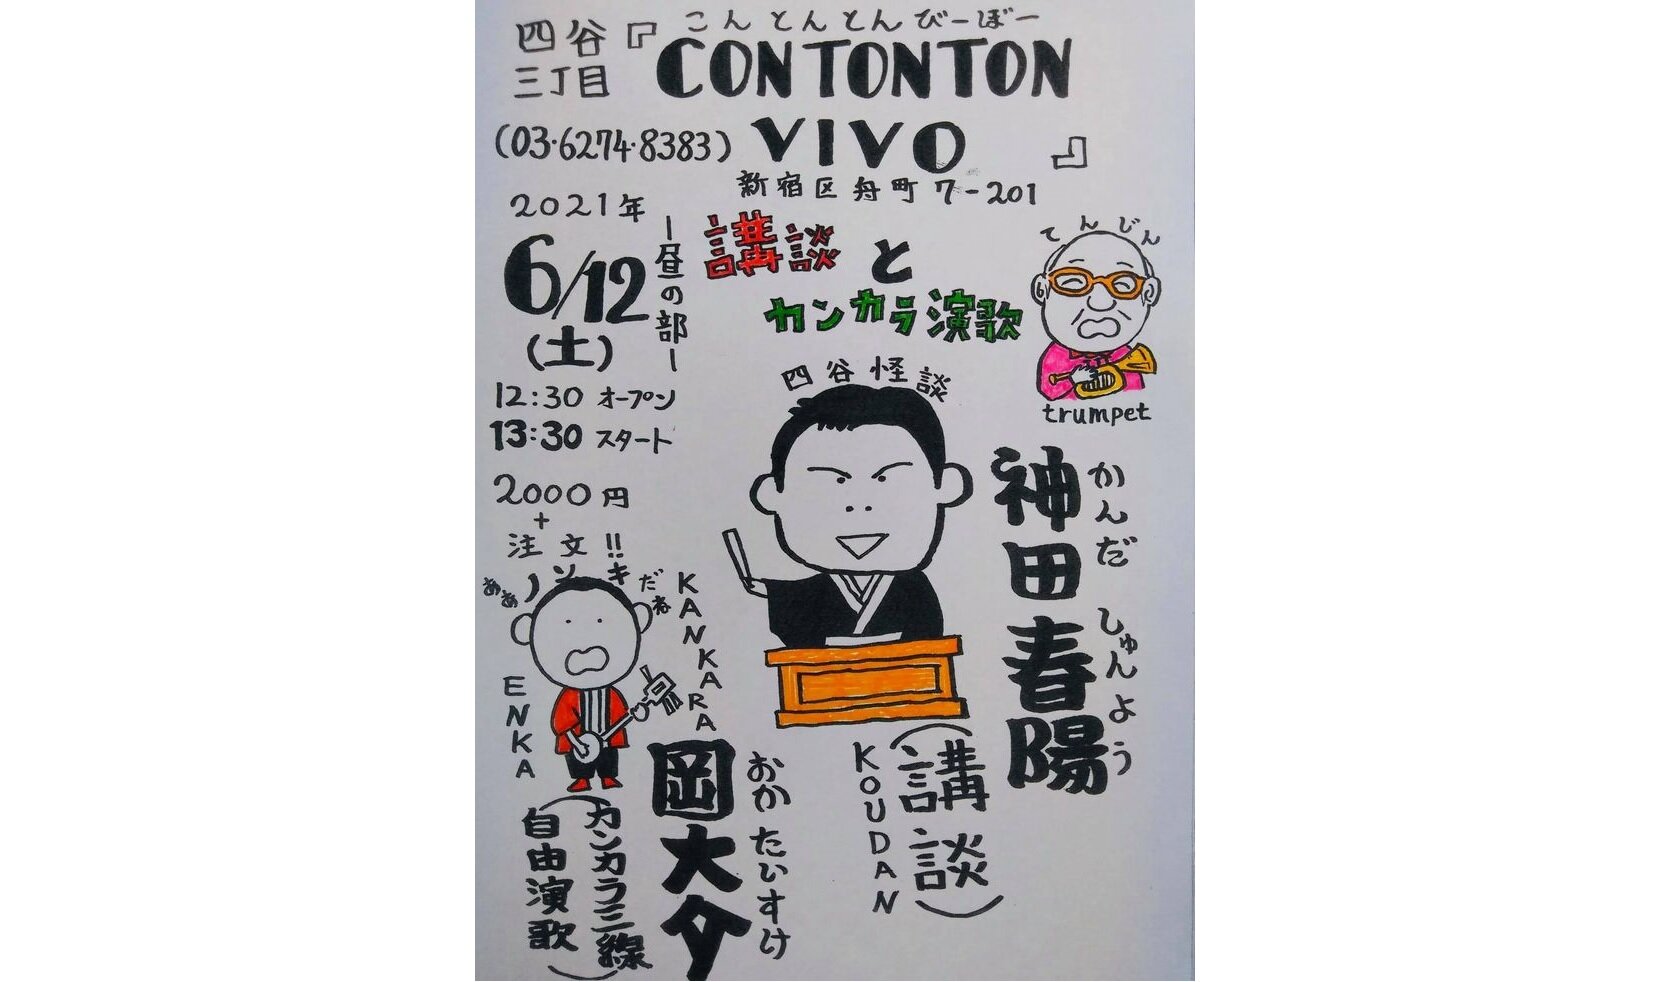 四谷
三丁目
『
こんとんとんびーぼー
CONTONTON
VIVO
』
(03・6274・8383)
新宿区舟町7-201
2021年
6/12
(土)
ー昼の部ー
12:30 オープン
13:30 スタート
2000円
+
注文!!
講談
と
カンカラ演歌
てんじん
trumpet
四谷怪談
神田春陽
かんだ しゅんよう
(講談)
KOUDAN
ああノンキだね
KANKARA
ENKA
岡大介
おか たいすけ
(カンカラ三線
自由演歌)